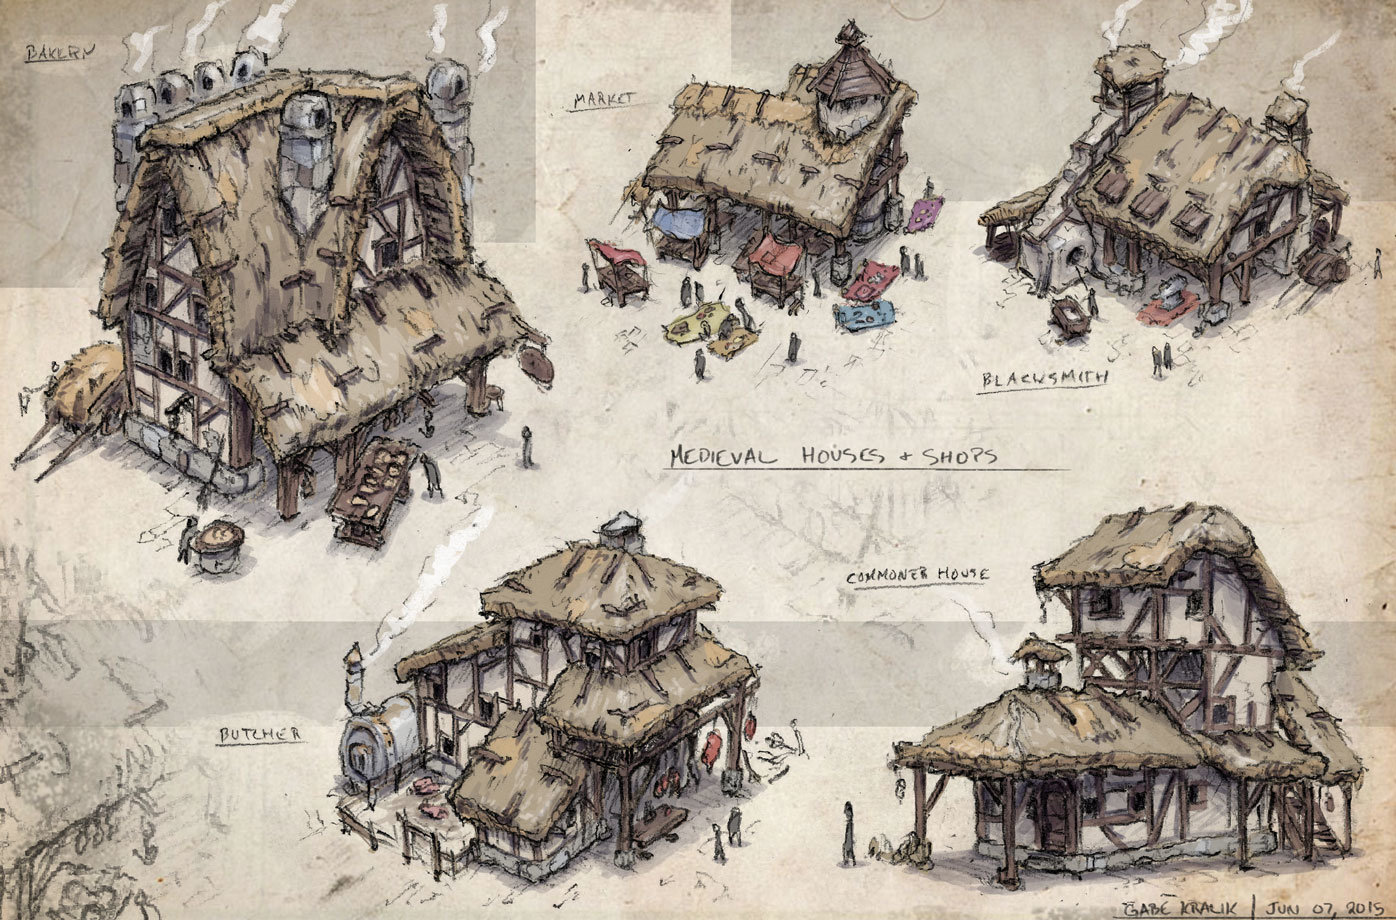 BAKERY
MARKET
BLACKSMITH
MEDIEVAL HOUSES + SHOPS
COMMONER HOUSE
BUTCHER
GABE KRALIK | JUN 07, 2015